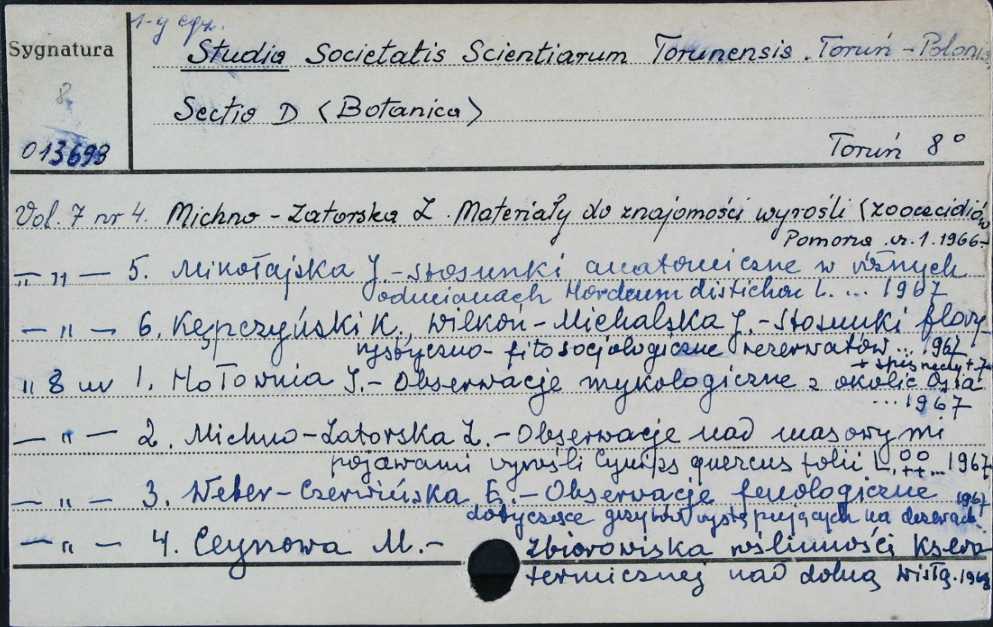 1-y egz.
Sygnatura
Studia Societatis Scientiarum Torunensis. Toruń - Polonia,
8
Sectio D (Botanica)
013698
Toruń 8°
Vol. 7 nr 4. Michno-Zatorska Z. Materiały do znajomości wyrośli (zoocecidiów
Pomorza. cz. 1. 1966-
— " — 5. Mikołajska J.- Stosunki anatomiczne w różnych
odmianach Hordeum distichon L. ... 1967
— " — 6. Kępczyński K., Wilkoń-Michalska J.- Stosunki flory-
styczno-fitosocjologiczne rezerwatów ... 1967
" 8 nr 1. Hołownia J.- Obserwacje mykologiczne z okolic Osia
... 1967
— " — 2. Michno-Zatorska Z.- Obserwacje nad masowymi
pojawami wyrośli Cynips quercus folii L. ... 1967
— " — 3. Weber-Czerwińska E.- Obserwacje fenologiczne 1967
dotyczące grzybów występujących na drzewach
— " — 4. Ceynowa M.- Zbiorowiska roślinności ksero-
termicznej nad dolną Wisłą. 1968